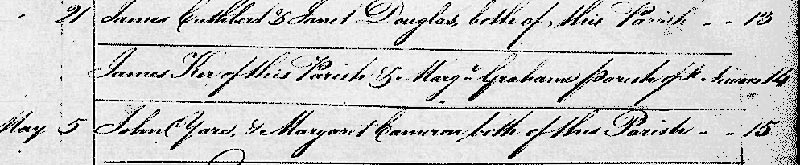 21 James Cuthbert & Janet Douglas, both of this Parish - - 13
James Ker of this Parish & Margt Grahame Parish of St 14
May 5 John Yard, & Margaret Cameron both of this Parish - - 15